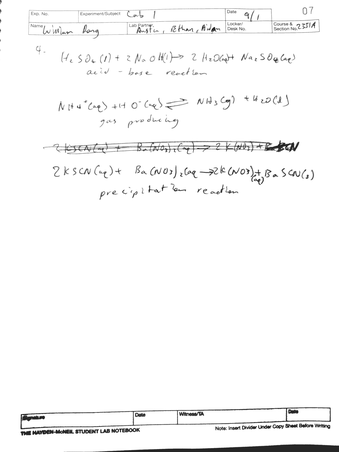 Exp. No. Experiment/Subject Lab 1 Date 9/1 07
Name William Lab Partner Austin, Ethan, Aidan Locker/Desk No. Course & Section No. 2331A
4.
H₂SO₄(l) + 2NaOH(l) → 2H₂O(l) + Na₂SO₄(aq)
acid-base reaction
NH4⁺(aq) + H O⁻(aq) ⇌ NH₃(g) + H₂O(l)
gas producing
2KSCN(aq) + Ba(NO3)₂(aq) → 2K(NO3) + BaSCN
2KSCN(aq) + Ba(NO3)₂(aq → 2K(NO3)(aq) + BaSCN(s)
precipitation reaction
Signature Date Witness/TA Date
THE HAYDEN-McNEIL STUDENT LAB NOTEBOOK Note: Insert Divider Under Copy Sheet Before Writing